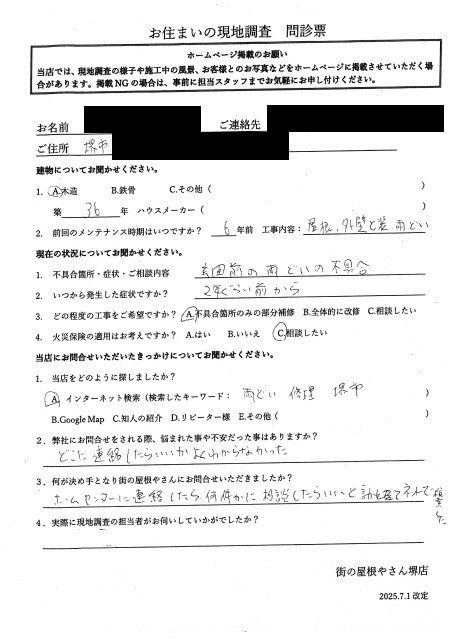 お住まいの現地調査　問診票
ホームページ掲載のお願い
当店では、現地調査の様子や施工中の風景、お客様とのお写真などをホームページに掲載させていただく場
合があります。掲載NGの場合は、事前に担当スタッフまでお気軽にお申し付けください。
お名前　ご連絡先
ご住所　堺市
建物についてお聞かせください。
1. A.木造　B.鉄骨　C.その他（　）
築　36　年　ハウスメーカー（　）
2. 前回のメンテナンス時期はいつですか？　6　年前　工事内容：屋根、外壁と装　雨どい
現在の状況についてお聞かせください。
1. 不具合箇所・症状・ご相談内容　玄関前の雨どいの不具合
2. いつから発生した症状ですか？　2年ぐらい前から
3. どの程度の工事をご希望ですか？　A.不具合箇所のみの部分補修　B.全体的に改修　C.相談したい
4. 火災保険の適用はお考えですか？　A.はい　B.いいえ　C.相談したい
当店にお問合せいただいたきっかけについてお聞かせください。
1. 当店をどのように探しましたか？
A. インターネット検索（検索したキーワード：　雨どい　修理　堺市　）
B.Google Map　C.知人の紹介　D.リピーター様　E.その他（　）
2. 弊社にお問合せをされる際、悩まれた事や不安だった事はありますか？
どこに連絡したらいいかよくわからなかった
3. 何が決め手となり街の屋根やさんにお問合せいただきましたか？
ホームセンターに連絡したら何件かに相談したらいいと
4. 実際に現地調査の担当者がお伺いしていかがでしたか？
街の屋根やさん堺店
2025.7.1 改定